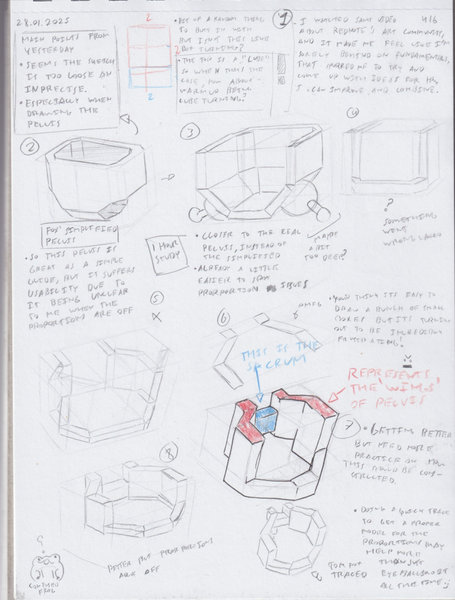 28.01.2025
MAIN POINTS FROM
YESTERDAY
• SEEMS THE SKETCH
IS TOO LOOSE AN
INPRECISE.
• ESPECIALLY WHEN
DRAWING THE
PELVIS
2
2
2
• BIT OF A RANDOM THING
TO BUTT IN WITH
BUT ISN'T THIS LIKE
BOX TURNING?
• THE TOP IS A "LOCK"
SO WHEN THAT'S THE
CASE,
WARM UP BEING
CUBE TURNING?
1
• I WATCHED SOME VIDEO
ABOUT
ART COMMUNITY,
AND IT MADE ME FEEL LIKE I'M
SORELY BEHIND ON FUNDAMENTALS,
THAT INSPIRED ME TO TRY AND
COME UP WITH IDEAS FOR HOW
I CAN IMPROVE AND
2
FOX' SIMPLIFIED
PELVIS
• SO THIS PELVIS IS
GREAT AS A SIMPLE
GUIDE, BUT IT SUFFERS
USABILITY DUE TO
IT BEING UNCLEAR
TO ME WHEN THE
PROPORTIONS ARE OFF
3
1 HOUR
STUDY
• CLOSER TO THE REAL
PELVIS, INSTEAD OF
THE SIMPLIFIED
• ALREADY A LITTLE
EASIER TO SPOT
PROPORTION ISSUES
MAYBE
A BIT
TOO DEEP?
4
?
SOMETHING
WENT
WRONG
• YOU'D THINK ITS EASY TO
DRAW A BUNCH OF
BOXES BUT ITS TURNING
OUT TO BE INCREDIBLY
FRUSTRATING!
5
X
6
OMFG
THIS IS THE
SACRUM
REPRESENTS
THE 'WINGS'
OF PELVIS
7
• GETTING BETTER
BUT NEED MORE
PRACTICE ON HOW
THIS SHOULD BE CON-
STRUCTED.
8
BETTER BUT PROPORTIONS
ARE OFF
?
CONFUSED
FROG
TOM FOX
TRACED
• DOING A QUICK TRACE
TO GET A PROPER
MODEL FOR THE
PROPORTIONS MAY
HELP MORE
THAN JUST
EYEBALLING IT
ALL THE TIME :)